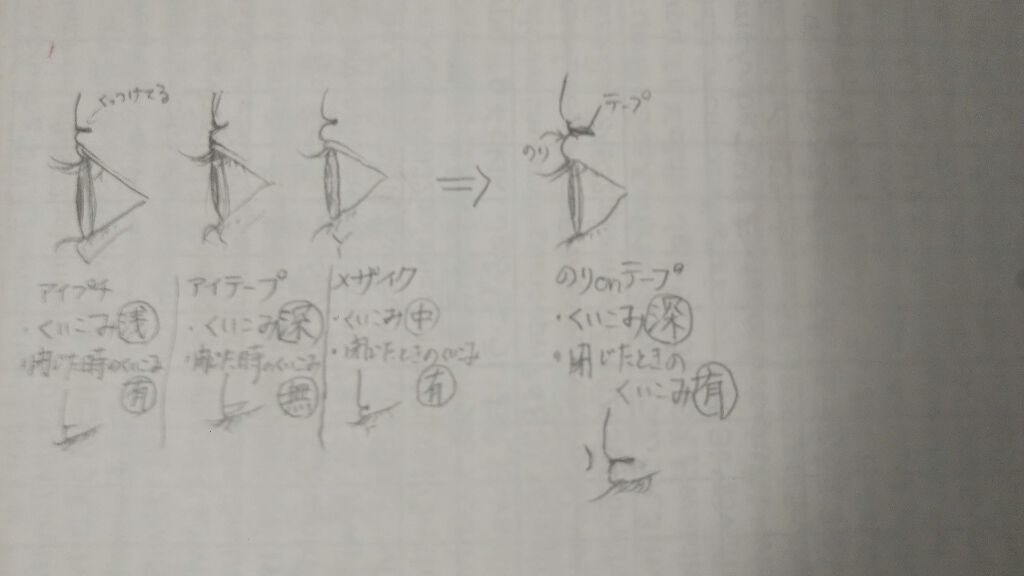 くっつけてる
テープ
のり
アイプチ
・くいこみ浅
・閉じた時のくいこみ
有
アイテープ
・くいこみ深
・閉じた時のくいこみ
無
メザイク
・くいこみ中
・閉じたときのくいこみ
有
のりonテープ
・くいこみ深
・閉じたときの
くいこみ有